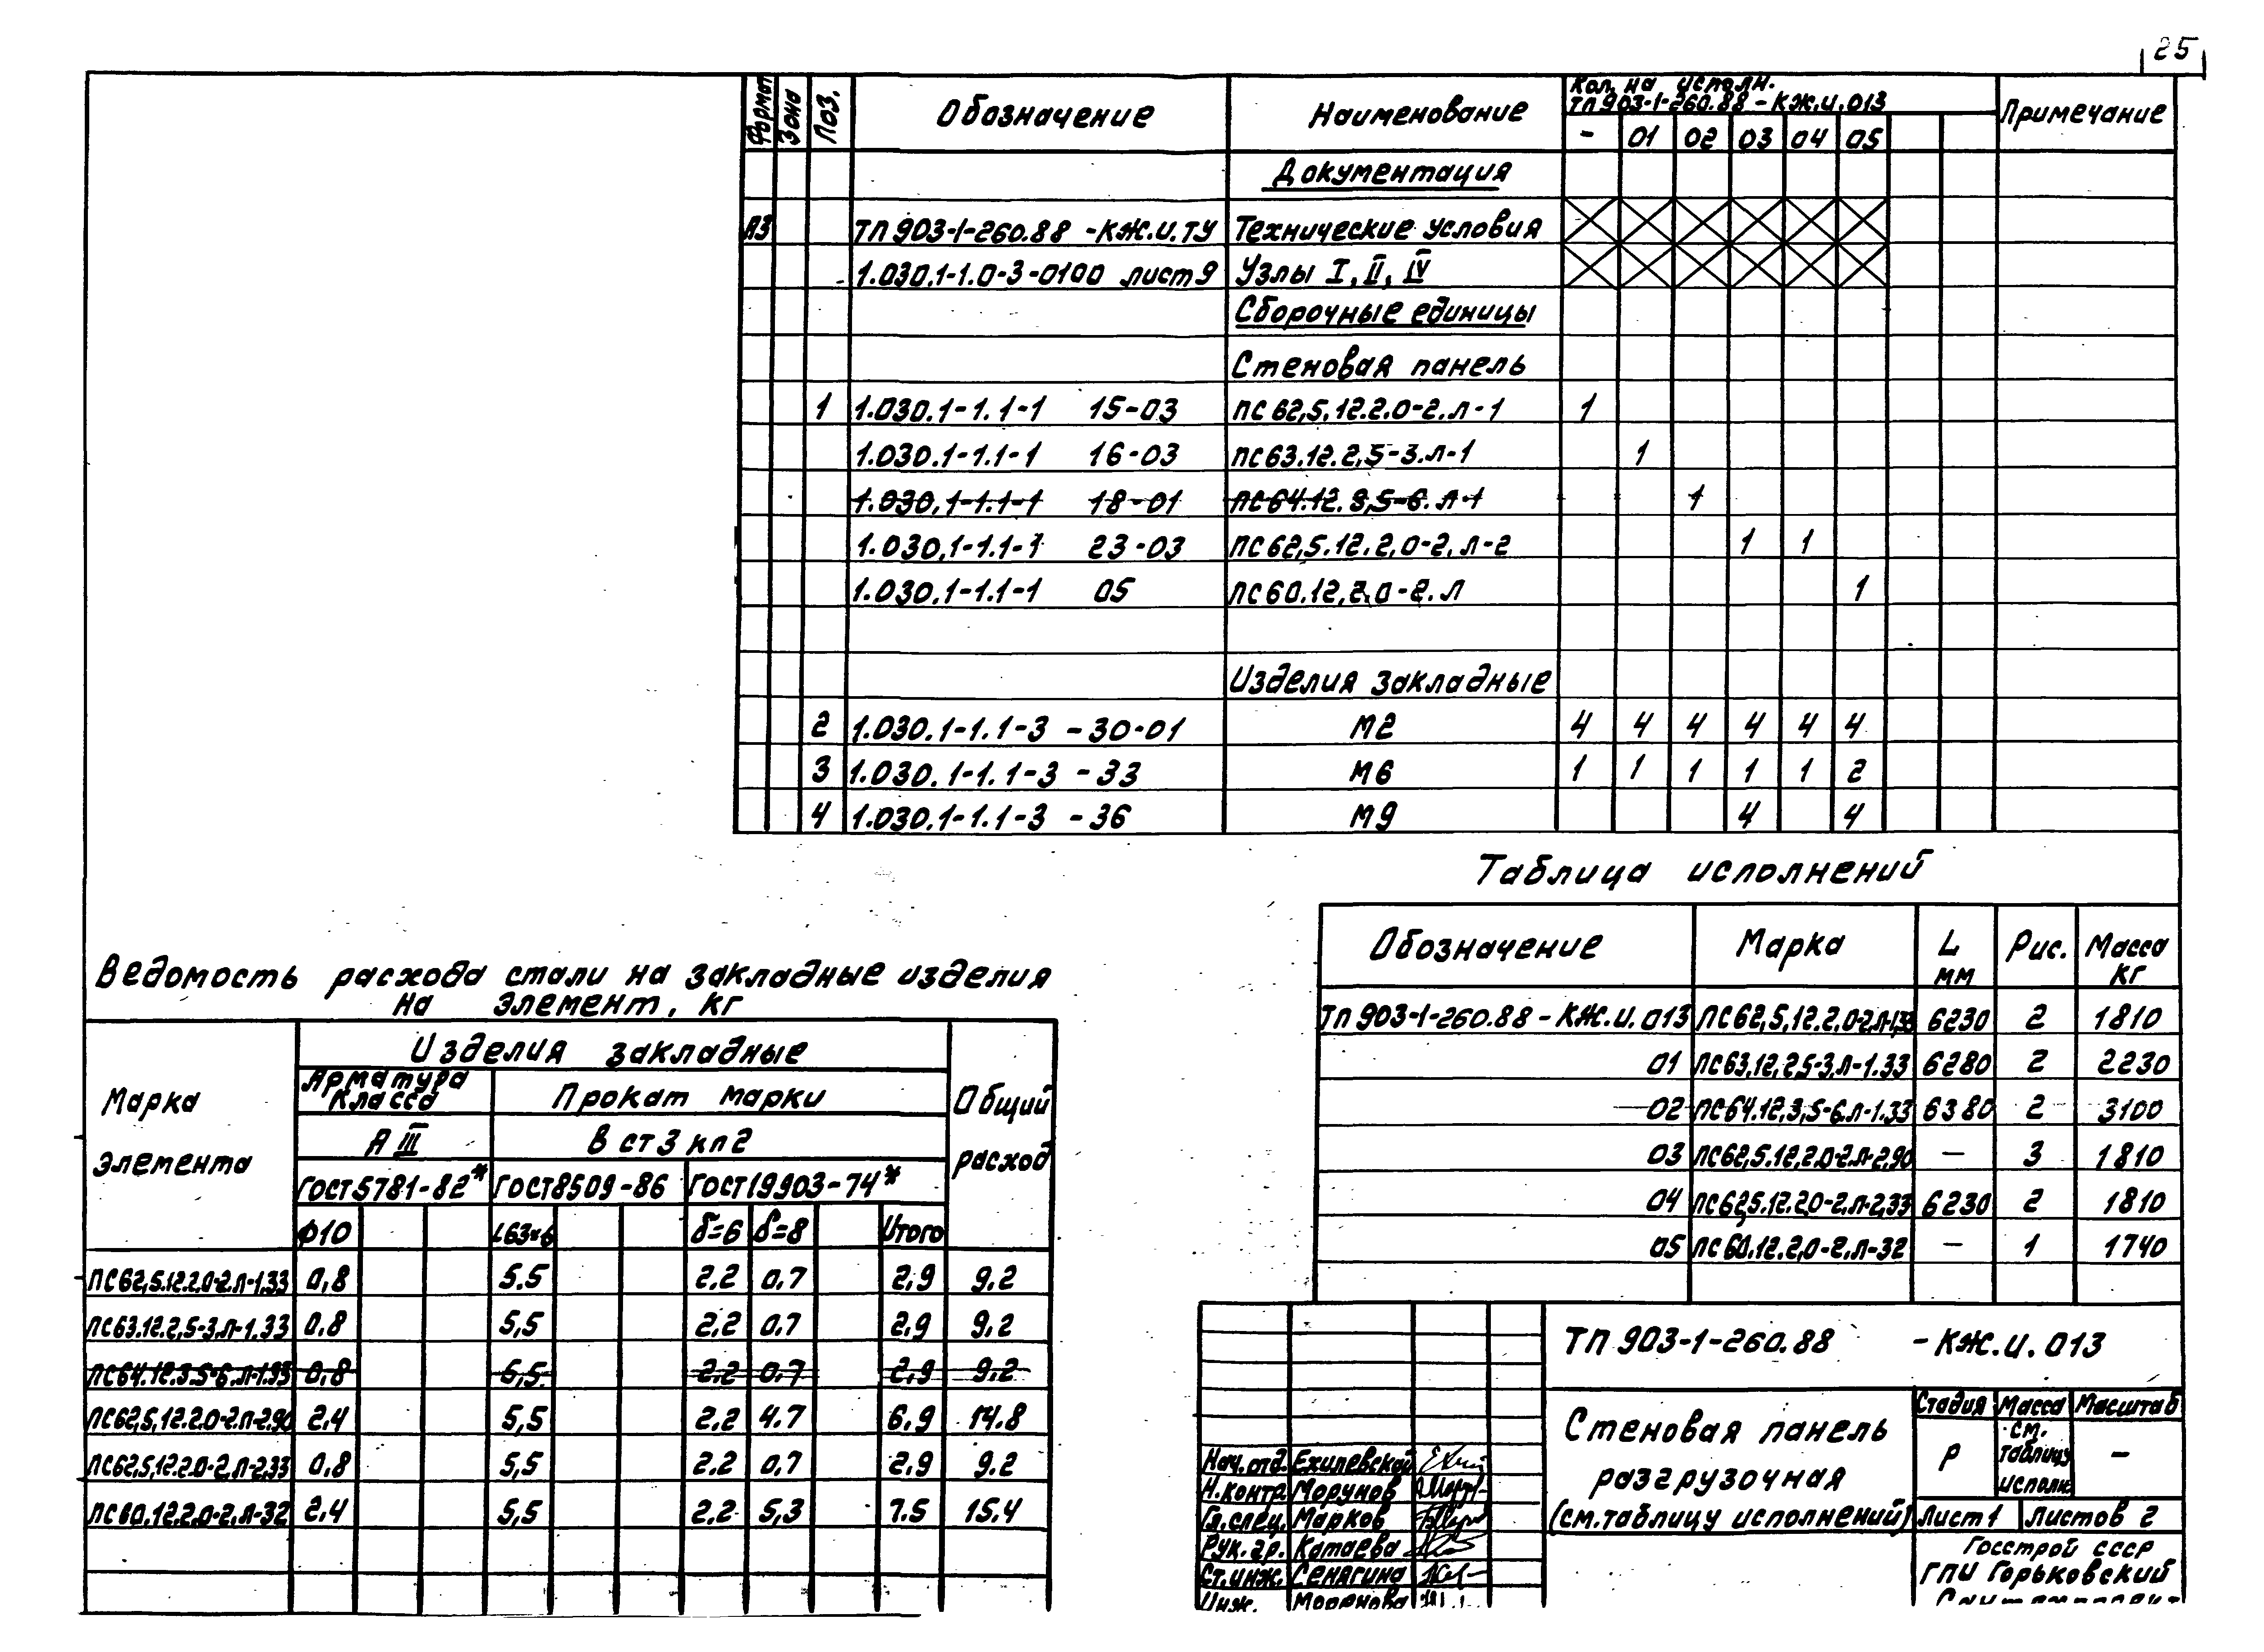 25
Формат Зона Поз. Обозначение Наименование Кол. на исполн. Примечание
ТП 903-1-260.88 - КЖ.И.013
- 01 02 03 04 05
Документация
А3 ТП 903-1-260.88 -КЖ.И.ТУ Технические условия
1.030.1-1.0-3-0100 лист 9 Узлы I, II, IV
Сборочные единицы
Стеновая панель
1 1.030.1-1.1-1 15-03 ПС 62,5.12.2.0-2.Л-1 1
1.030.1-1.1-1 16-03 ПС 63.12.2,5-3.Л-1 1
1.030.1-1.1-1 18-01 ПС 64.12.3,5-6.Л-1 1
1.030.1-1.1-1 23-03 ПС 62,5.12.2,0-2.Л-2 1 1
1.030.1-1.1-1 05 ПС 60.12.2,0-2.Л 1
Изделия закладные
2 1.030.1-1.1-3 -30-01 М2 4 4 4 4 4 4
3 1.030.1-1.1-3 -33 М6 1 1 1 1 1 2
4 1.030.1-1.1-3 -36 М9 4 4
Таблица исполнений
Обозначение Марка L мм Рис. Масса кг
ТП 903-1-260.88 - КЖ.И.013 ПС 62,5.12.2,0-2.Л-1.33 6230 2 1810
01 ПС 63.12.2,5-3.Л-1.33 6280 2 2230
02 ПС 64.12.3,5-6.Л-1.33 6380 2 3100
03 ПС 62,5.12.2,0-2.Л-2.90 — 3 1810
04 ПС 62,5.12.2,0-2.Л-2.33 6230 2 1810
05 ПС 60.12.2,0-2.Л-32 — 1 1740
Ведомость расхода стали на закладные изделия
на элемент, кг
Марка элемента Изделия закладные Общий расход
Арматура класса Прокат марки
А III В ст 3 кп 2
ГОСТ 5781-82* ГОСТ 8509-86 ГОСТ 19903-74*
Ф10 L63×6 δ=6 δ=8 Итого
ПС 62,5.12.2.0-2.Л-1.33 0,8 5.5 2.2 0,7 2,9 9.2
ПС 63.12.2,5-3.Л-1.33 0.8 5,5 2.2 0.7 2,9 9.2
ПС 64.12.3.5-6.Л-1.33 0.8 6,5 2.2 0.7 2,9 9.2
ПС 62,5.12.2.0-2.Л-2.90 2.4 5,5 2.2 4.7 6,9 14.8
ПС 62,5.12.2.0-2.Л-2.33 0.8 5,5 2.2 0,7 2,9 9.2
ПС 60.12.2.0-2.Л-32 2.4 5,5 2.2 5,3 7.5 15.4
ТП 903-1-260.88 -КЖ.И.013
Стеновая панель
разгрузочная
(см. таблицу исполнений)
Стадия Масса Масштаб
Р см. таблицу исполн. —
Лист 1 Листов 2
Госстрой СССР
ГПИ Горьковский
Нач.отд. Ехилевский
Н.контр. Морунов
Гл.спец. Марков
Рук.гр. Катаева
Ст.инж. Сенягина
Инж.